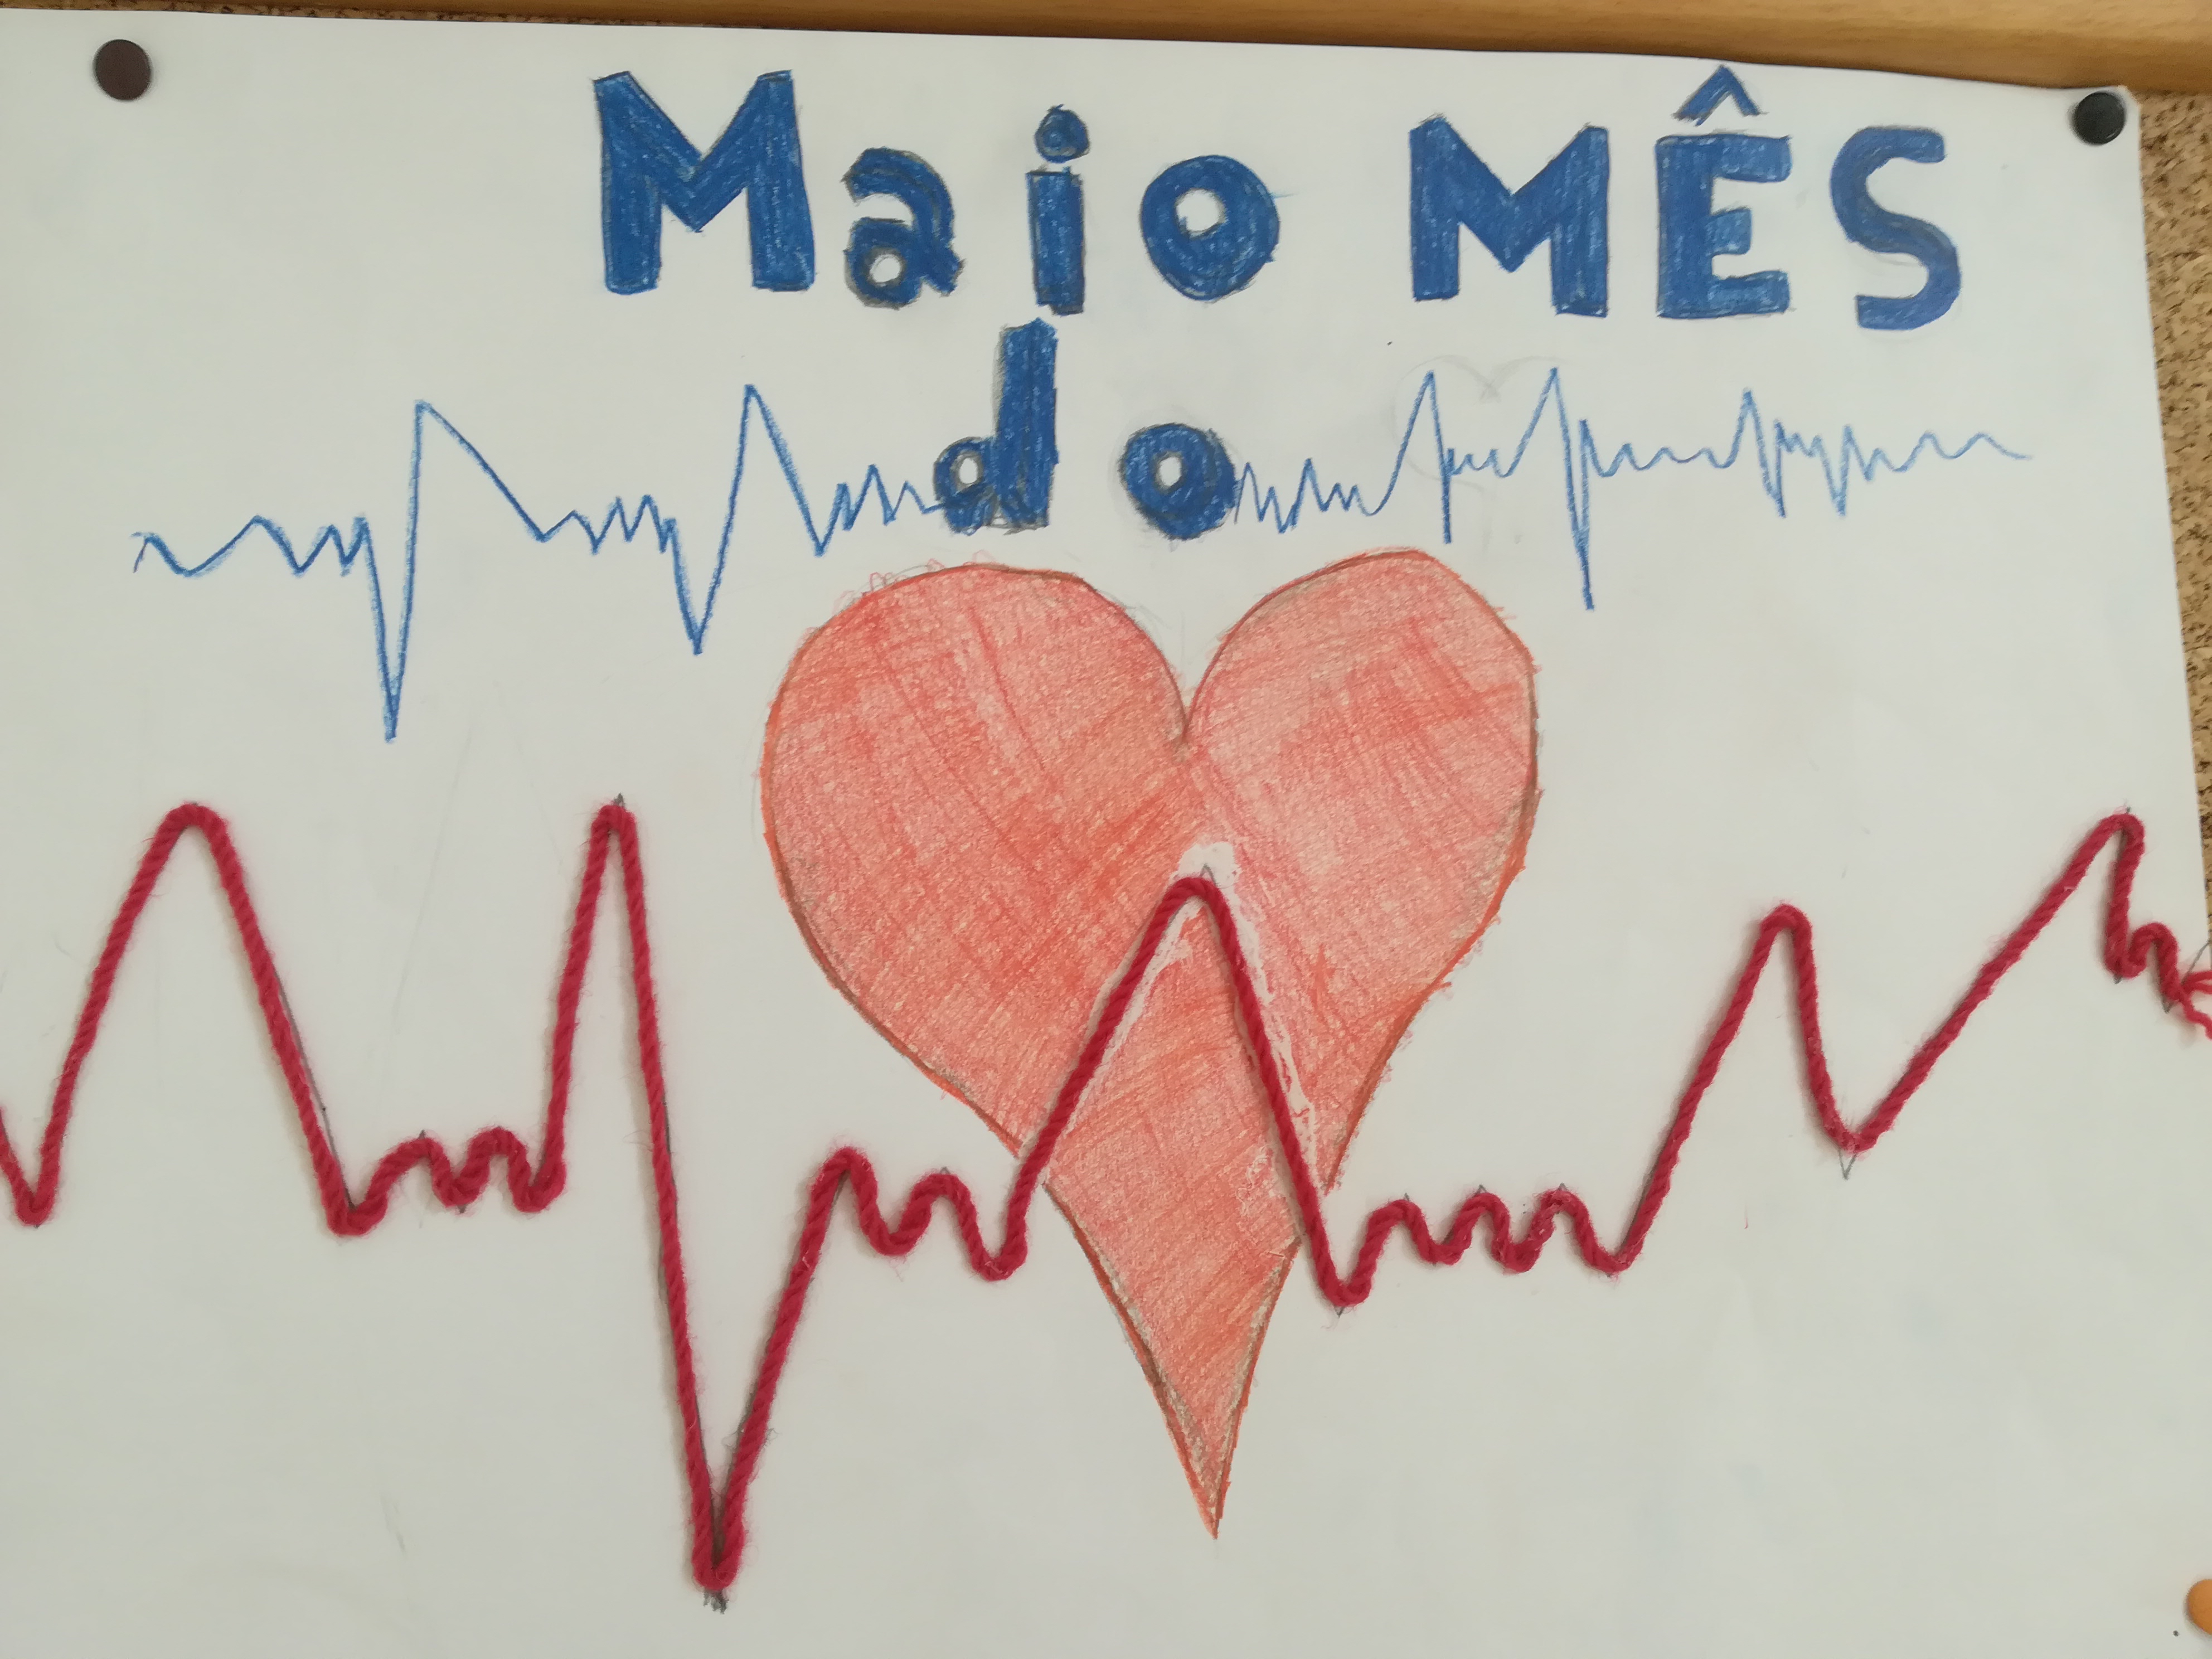 Maio MÊS
do